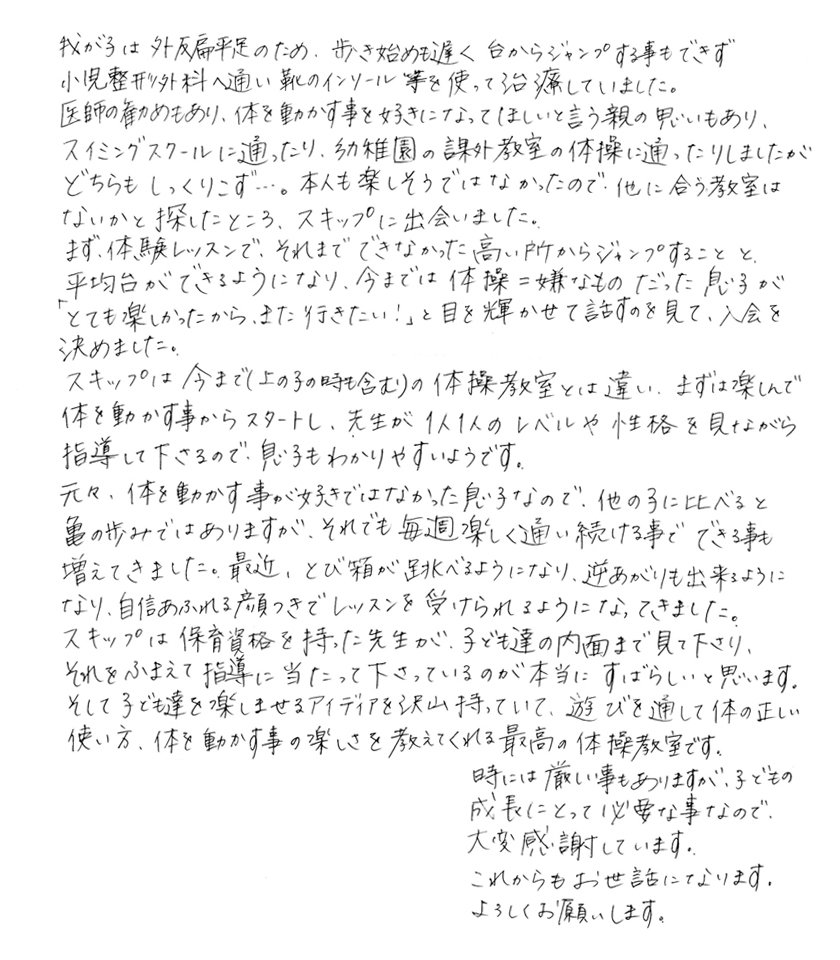 我が子は外反扁平足のため、歩き始めも遅く台からジャンプする事もできず
小児整形外科へ通い靴のインソール等を使って治療していました。
医師の勧めもあり、体を動かす事を好きになってほしいと言う親の思いもあり、
スイミングスクールに通ったり、幼稚園の課外教室の体操に通ったりしましたが
どちらもしっくりこず…。本人も楽しそうではなかったので、他に合う教室は
ないかと探したところ、スキップに出会いました。
まず、体験レッスンで、それまでできなかった高い所からジャンプすることと、
平均台ができるようになり、今までは体操=嫌なものだった息子が
「とても楽しかったから、また行きたい!」と目を輝かせて話すのを見て、入会を
決めました。
スキップは今まで(上の子の時も含む)の体操教室とは違い、まずは楽しんで
体を動かす事からスタートし、先生が1人1人のレベルや性格を見ながら
指導して下さるので、息子もわかりやすいようです。
元々、体を動かす事が好きではなかった息子なので、他の子に比べると
亀の歩みではありますが、それでも毎週楽しく通い続ける事でできる事も
増えてきました。最近、とび箱が跳べるようになり、逆あがりも出来るように
なり、自信あふれる顔つきでレッスンを受けられるようになってきました。
スキップは保育資格を持った先生が、子ども達の内面まで見て下さり、
それをふまえて指導に当たって下さっているのが本当にすばらしいと思います。
そして子ども達を楽しませるアイディアを沢山持っていて、遊びを通して体の正しい
使い方、体を動かす事の楽しさを教えてくれる最高の体操教室です。
時には厳しい事もありますが、子どもの
成長にとって必要な事なので、
大変感謝しています。
これからもお世話になります。
よろしくお願いします。